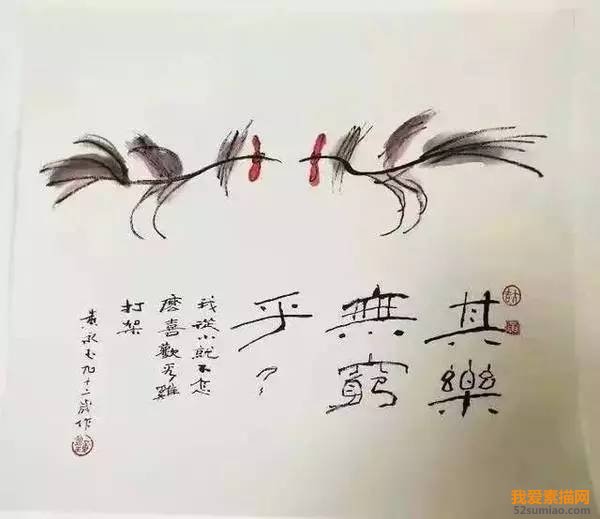 其樂
無窮
乎？
我從小就不怎
麼喜歡看雞
打架
黃永玉九十二歲作
我爱素描网
52sumiao.com